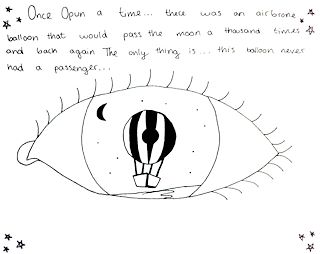 Once Opun a time... there was an airbrone
balloon that would pass the moon a thousand times
and back again The only thing is... this balloon never
had a passenger...